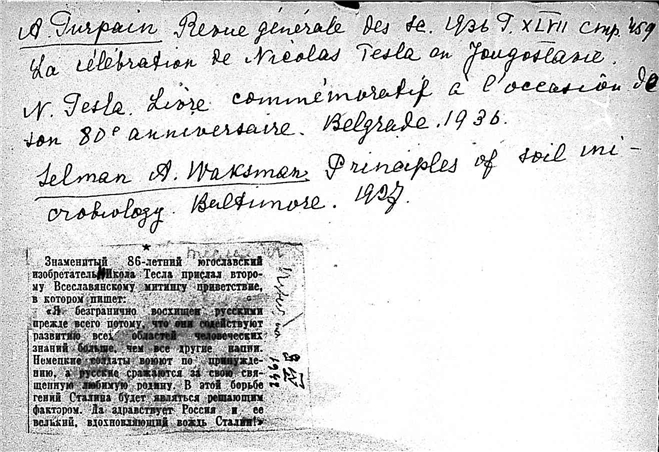 A. Turpain Revue générale des sc. 1936 T. XLVII стр. 459
La célébration de Nicolas Tesla en Yougoslavie.
N. Tesla. Livre commémoratif à l'occasion de
son 80e anniversaire. Belgrade. 1936.
Selman A. Waksman. Principles of soil mi-
crobiology. Baltimore. 1927.
★
Знаменитый 86-летний югославский
изобретатель Никола Тесла прислал второ-
му Всеславянскому митингу приветствие,
в котором пишет:
«Я безгранично восхищен русскими
прежде всего потому, что они содействуют
развитию всех областей человеческих
знаний больше, чем все другие нации.
Немецкие солдаты воюют по принужде-
нию, а русские сражаются за свою свя-
щенную любимую родину. В этой борьбе
гений Сталина будет являться решающим
фактором. Да здравствует Россия и ее
великий, вдохновляющий вождь Сталин!»
1942